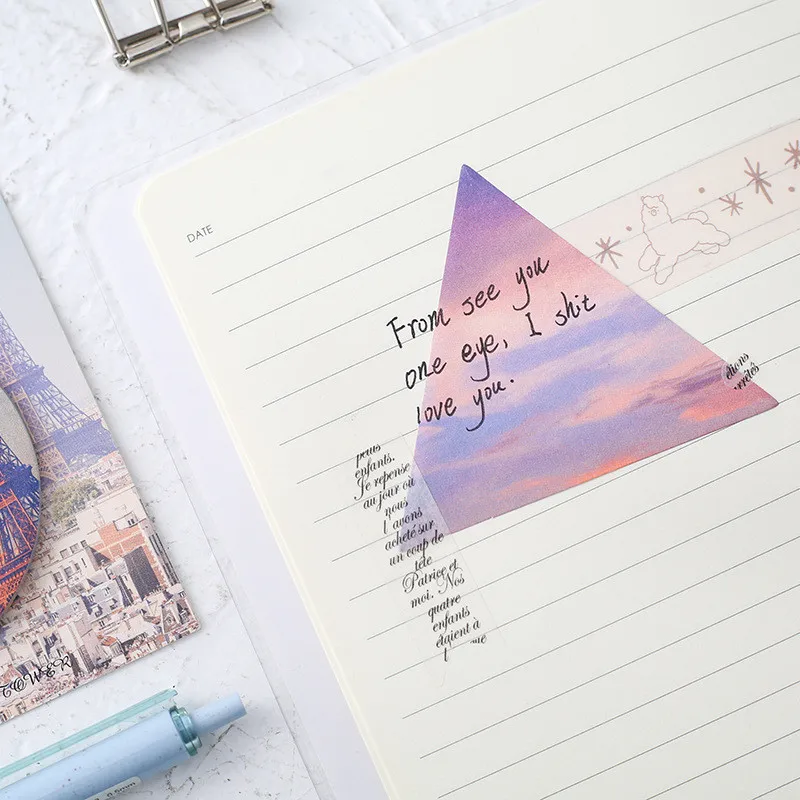 DATE
From see you
one eye, I shit
love you.
étions
petits
enfants.
Je repense
au jour où
nous
l'avons
acheté sur
un coup de
tête
Patrice et
moi. Nos
quatre
enfants
étaient à
TOWER
0.5mm